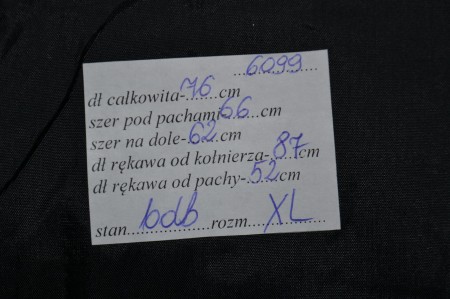 6099
dł całkowita-76cm
szer pod pachami 66 cm
szer na dole-62 cm
dł rękawa od kołnierza-87cm
dł rękawa od pachy-52cm
stan bdb rozm XL